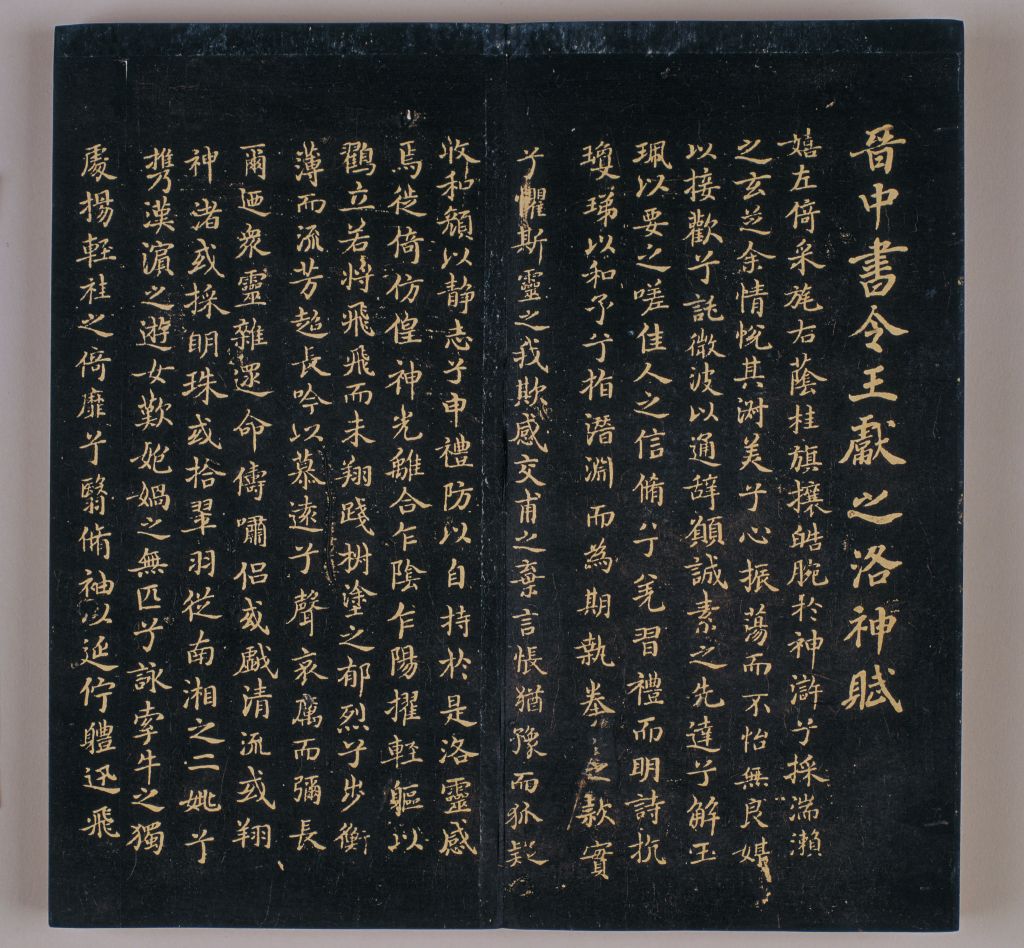 晉中書令王獻之洛神賦
嬉左倚采旄右蔭桂旗攘皓腕扵神滸兮採湍瀨
之玄芝余情恱其淑美兮心振蕩而不怡無良媒
以接歡兮託微波以通辝願誠素之先達兮解玉
珮以要之嗟佳人之信脩兮羌習禮而明詩抗
瓊珶以和予兮指潛淵而為期執眷之款實
兮懼斯靈之我欺感交甫之棄言悵猶豫而狐疑
收和顏以静志兮申禮防以自持於是洛靈感
焉徙倚仿偟神光離合乍陰乍陽擢輕軀以
鶴立若將飛飛而未翔踐椒塗之郁烈兮步衡
薄而流芳超長吟以慕遠兮聲哀厲而彌長
爾迺衆靈雜遝命儔嘯侣或戲清流或翔
神渚或採明珠或拾翠羽從南湘之二姚兮
携漢濵之遊女歎媲媧之無匹兮詠牽牛之獨
處揚輕袿之倚靡兮翳脩袖以延佇體迅飛